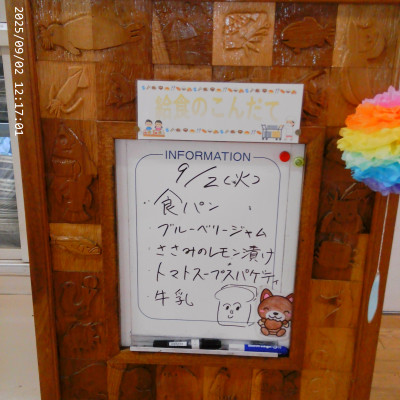 2025/09/02 12:17:01
給食のこんだて
INFORMATION
9/2(火)
・食パン
・ブルーベリージャム
・ささみのレモン漬け
・トマトスープスパゲティ
・牛乳